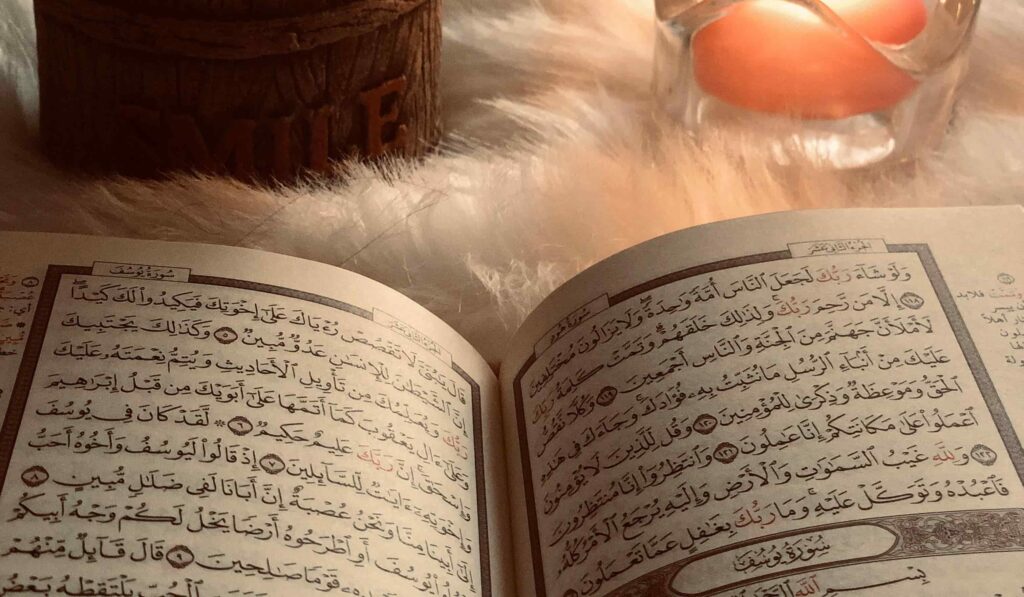 SMILE
الجزء الثاني عشر
سورة هود
وَلَوْ شَآءَ رَبُّكَ لَجَعَلَ ٱلنَّاسَ أُمَّةً وَٰحِدَةً ۖ وَلَا يَزَالُونَ مُخْتَلِفِينَ
١١٨ إِلَّا مَن رَّحِمَ رَبُّكَ ۚ وَلِذَٰلِكَ خَلَقَهُمْ ۗ وَتَمَّتْ كَلِمَةُ رَبِّكَ
لَأَمْلَأَنَّ جَهَنَّمَ مِنَ ٱلْجِنَّةِ وَٱلنَّاسِ أَجْمَعِينَ ١١٩ وَكُلًّا نَّقُصُّ
عَلَيْكَ مِنْ أَنۢبَآءِ ٱلرُّسُلِ مَا نُثَبِّتُ بِهِۦ فُؤَادَكَ ۚ وَجَآءَكَ فِى هَٰذِهِ
ٱلْحَقُّ وَمَوْعِظَةٌ وَذِكْرَىٰ لِلْمُؤْمِنِينَ ١٢٠ وَقُل لِّلَّذِينَ لَا يُؤْمِنُونَ
ٱعْمَلُوا۟ عَلَىٰ مَكَانَتِكُمْ إِنَّا عَٰمِلُونَ ١٢١ وَٱنتَظِرُوٓا۟ إِنَّا مُنتَظِرُونَ
١٢٢ وَلِلَّهِ غَيْبُ ٱلسَّمَٰوَٰتِ وَٱلْأَرْضِ وَإِلَيْهِ يُرْجَعُ ٱلْأَمْرُ كُلُّهُۥ
فَٱعْبُدْهُ وَتَوَكَّلْ عَلَيْهِ ۚ وَمَا رَبُّكَ بِغَٰفِلٍ عَمَّا تَعْمَلُونَ
سُورَةُ يُوسُفَ
بِسْمِ ٱللَّهِ
الجزء الثاني عشر
سورة يوسف
قَالَ يَٰبُنَىَّ لَا تَقْصُصْ رُءْيَاكَ عَلَىٰٓ إِخْوَتِكَ فَيَكِيدُوا۟ لَكَ كَيْدًا ۖ
إِنَّ ٱلشَّيْطَٰنَ لِلْإِنسَٰنِ عَدُوٌّ مُّبِينٌ ٥ وَكَذَٰلِكَ يَجْتَبِيكَ
رَبُّكَ وَيُعَلِّمُكَ مِن تَأْوِيلِ ٱلْأَحَادِيثِ وَيُتِمُّ نِعْمَتَهُۥ عَلَيْكَ
وَعَلَىٰٓ ءَالِ يَعْقُوبَ كَمَآ أَتَمَّهَا عَلَىٰٓ أَبَوَيْكَ مِن قَبْلُ إِبْرَٰهِيمَ
وَإِسْحَٰقَ ۚ إِنَّ رَبَّكَ عَلِيمٌ حَكِيمٌ ٦ ۞ لَّقَدْ كَانَ فِى يُوسُفَ
وَإِخْوَتِهِۦٓ ءَايَٰتٌ لِّلسَّآئِلِينَ ٧ إِذْ قَالُوا۟ لَيُوسُفُ وَأَخُوهُ أَحَبُّ
إِلَىٰٓ أَبِينَا مِنَّا وَنَحْنُ عُصْبَةٌ إِنَّ أَبَانَا لَفِى ضَلَٰلٍ مُّبِينٍ ٨
يُوسُفَ أَوِ ٱطْرَحُوهُ أَرْضًا يَخْلُ لَكُمْ وَجْهُ أَبِيكُمْ
قَوْمًا صَٰلِحِينَ ٩ قَالَ قَآئِلٌ مِّنْهُمْ
ٱلْجُبِّ يَلْتَقِطْهُ بَعْضُ